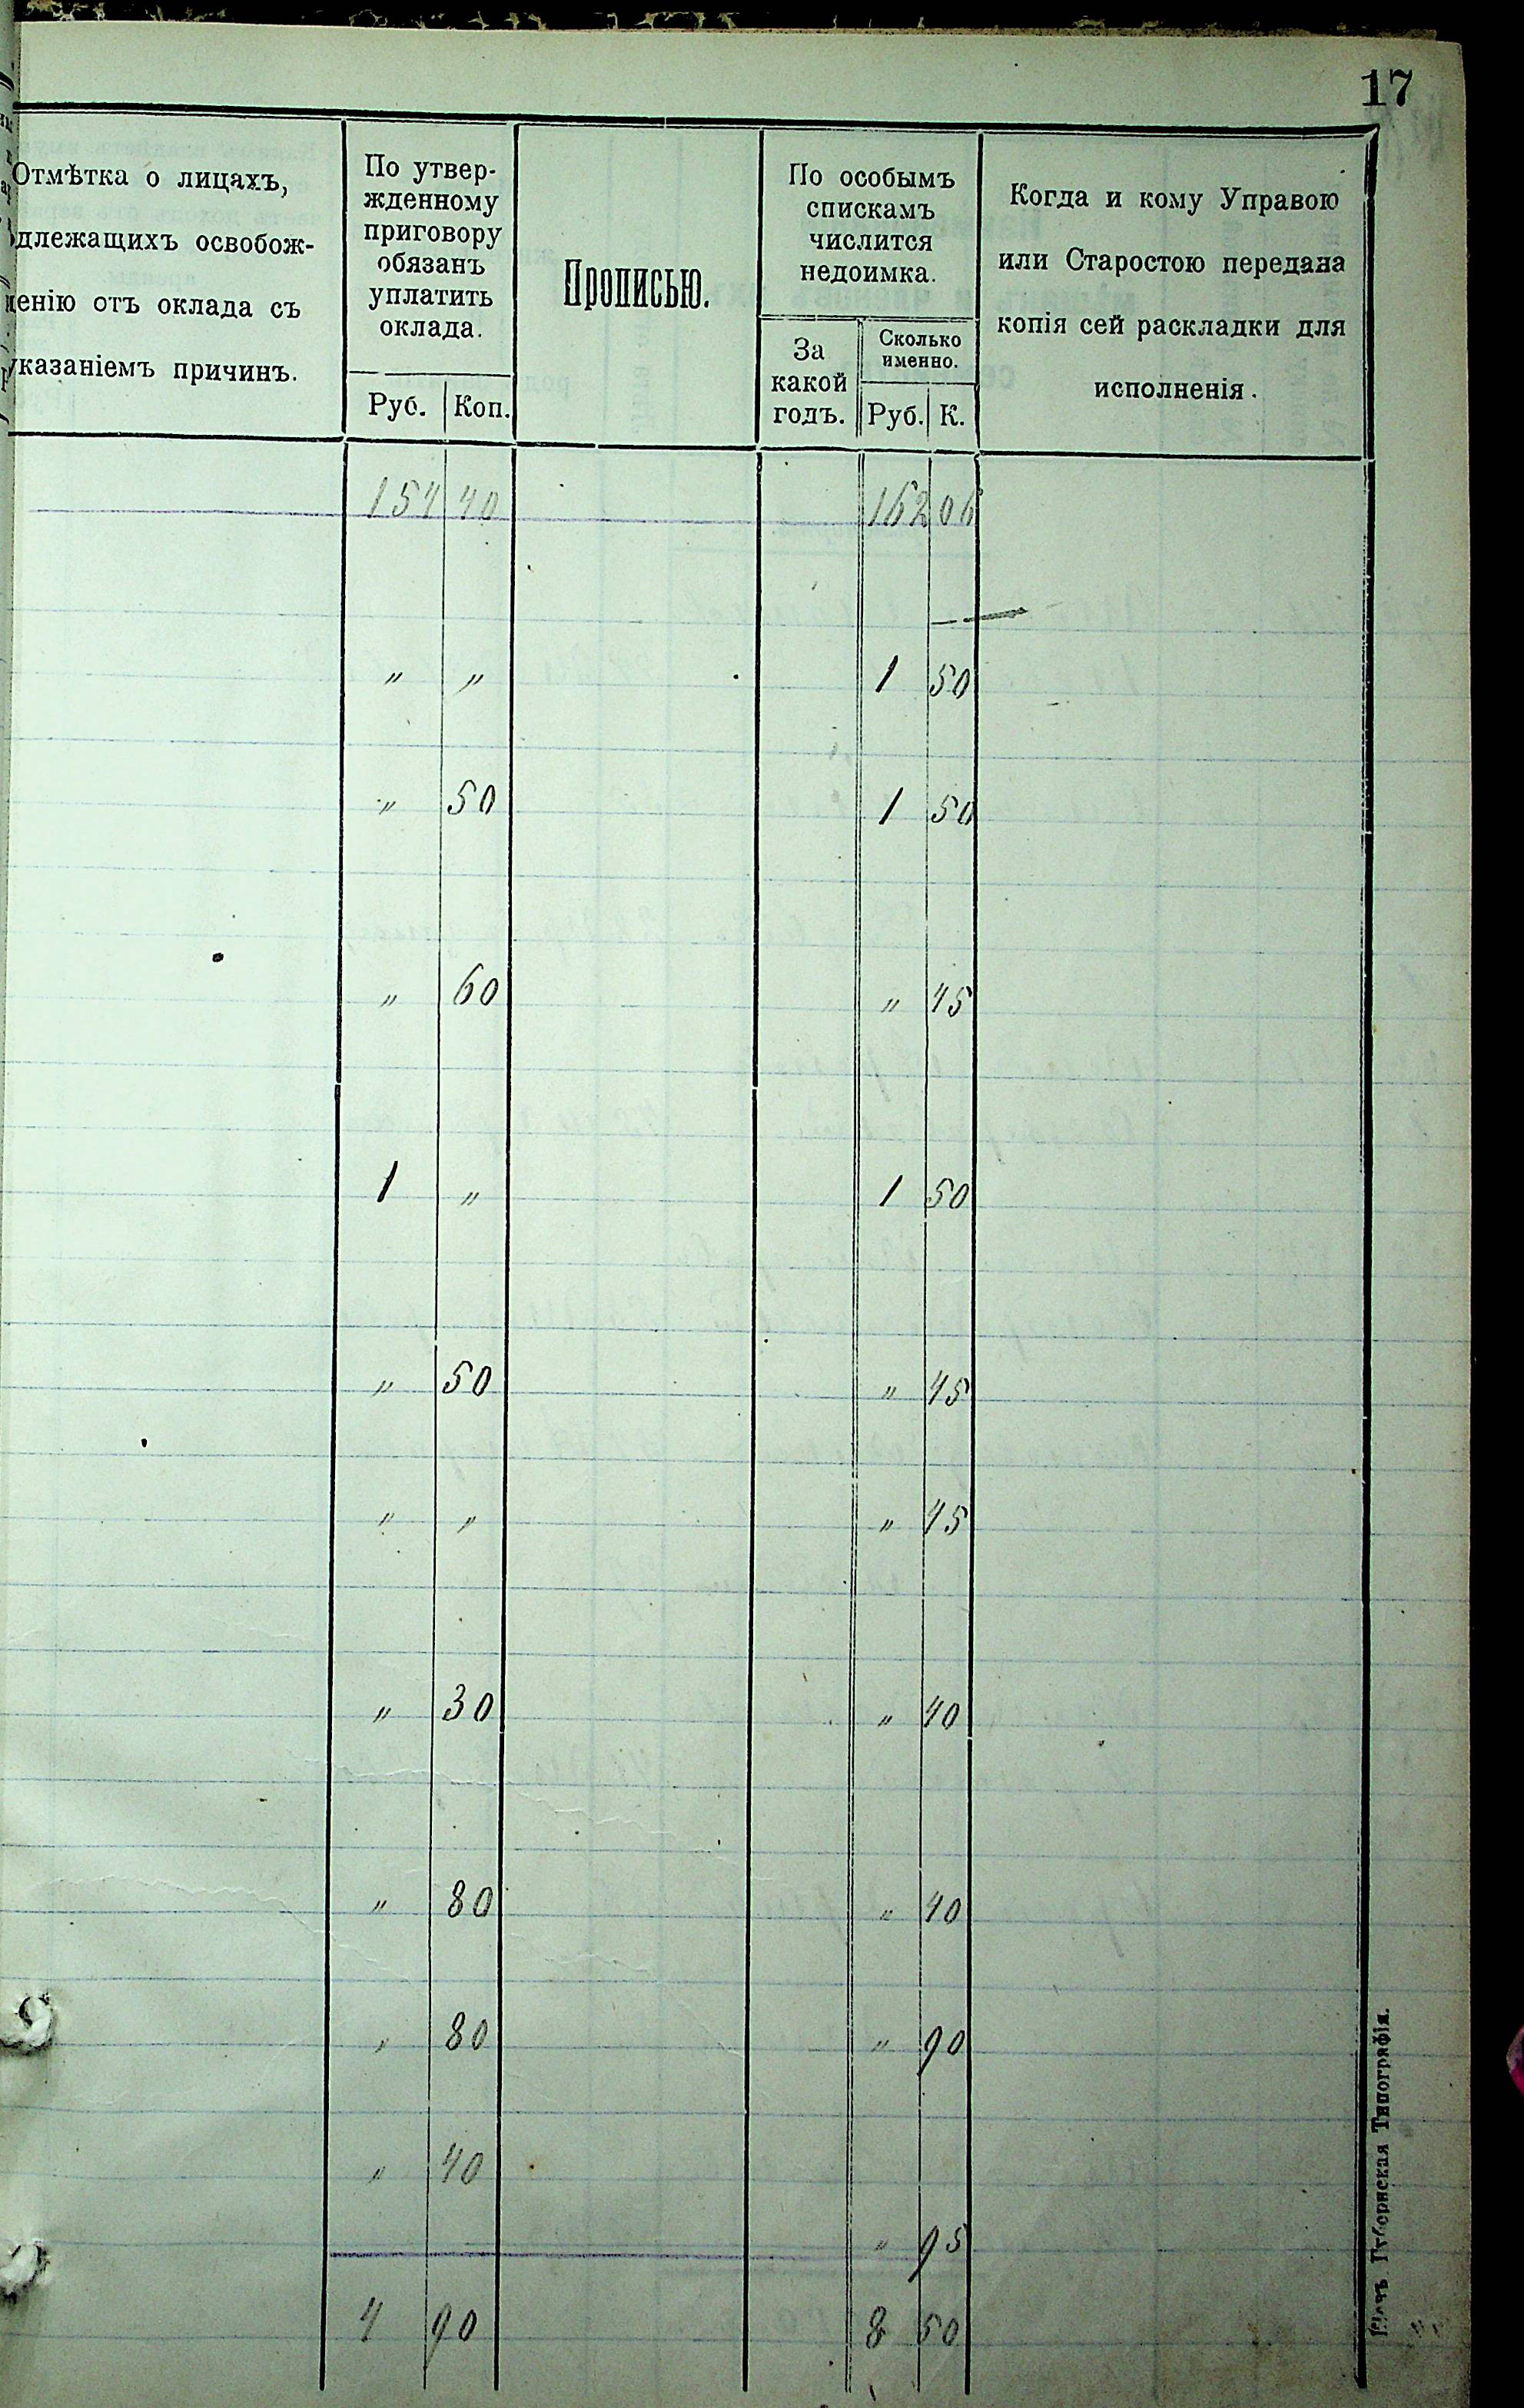 17
Отмѣтка о лицахъ,
длежащихъ освобож-
енію отъ оклада съ
указаніемъ причинъ.
По утвер-
жденному
приговору
обязанъ
уплатить
оклада.
Руб. Коп.
Прописью.
По особымъ
спискамъ
числится
недоимка.
За
какой
годъ.
Сколько
именно.
Руб. К.
Когда и кому Управою
или Старостою передана
копія сей раскладки для
исполненія.
154 40 162 06
" " 1 50
" 50 1 50
" 60 " 45
1 " 1 50
" 50 " 45
" " " 45
" 30 " 40
" 80 " 40
" 80 " 90
" 40
" 95
4 90 8 50
Губернская Типографія.